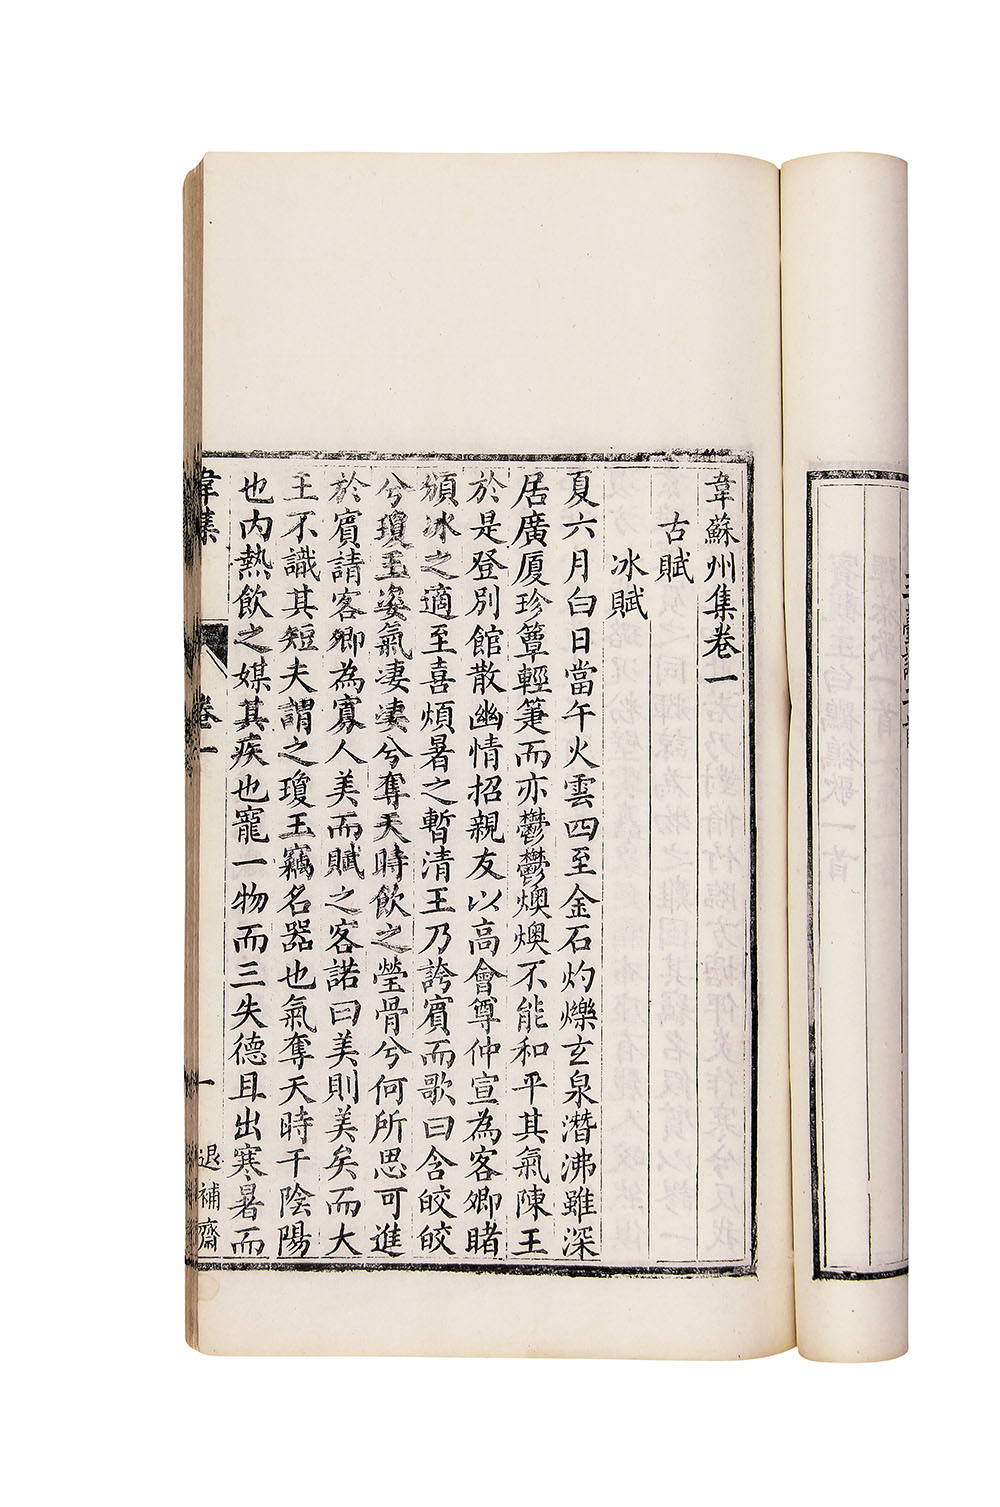 韋蘇州集卷一
古賦
冰賦
夏六月白日當午火雲四至金石灼爍玄泉潛沸雖深
居廣厦珍簟輕箑而亦鬱鬱燠燠不能和平其氣陳王
於是登別館散幽情招親友以高會尊仲宣為客卿睹
頒冰之適至喜煩暑之暫清王乃誇賓而歌曰含皎皎
兮瓊玉姿氣凄凄兮奪天時飲之瑩骨兮何所思可進
於賓請客卿為寡人美而賦之客諾曰美則美矣而大
王不識其短夫謂之瓊玉竊名器也氣奪天時干陰陽
也内熱飲之媒其疾也寵一物而三失德且出寒暑而
韋集
卷一
一
退補齋